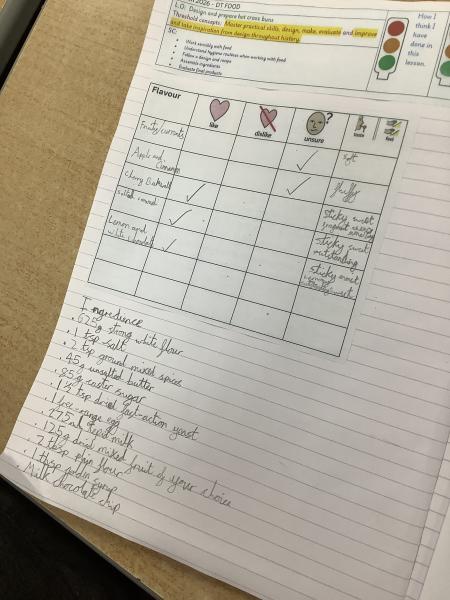 2026 - DT FOOD
L.O: Design and prepare hot cross buns
Threshold concepts: Master practical skills, design, make, evaluate and improve
and take inspiration from design throughout history.
SC:
Work sensibly with food
Understand hygiene routines when working with food
Follow a design and recipe
Assemble ingredients
Evaluate final products
How I
think I
have
done in
this
lesson.
Flavour
like
dislike
unsure
taste
feel
Fruity/currants
soft
Apple and
Cinnamon
fluffy
Cherry Bakewell
sticky, sweet
salted caramel
sticky sweet
outstanding
Lemon and
white chocolate
sticky sweet
Ingredience
. 625g strong white flour
. 1 tsp salt
. 2 tsp ground mixed spice
. 45g unsalted butter
. 85g caster sugar
. 1½ tsp dried fast-action yeast
. 1 free-range egg
. 275ml tepid milk
. 125g dried mixed fruit of your choice
. 2 tbsp plain flour
. 1 tbsp golden syrup
. Milk chocolate chip